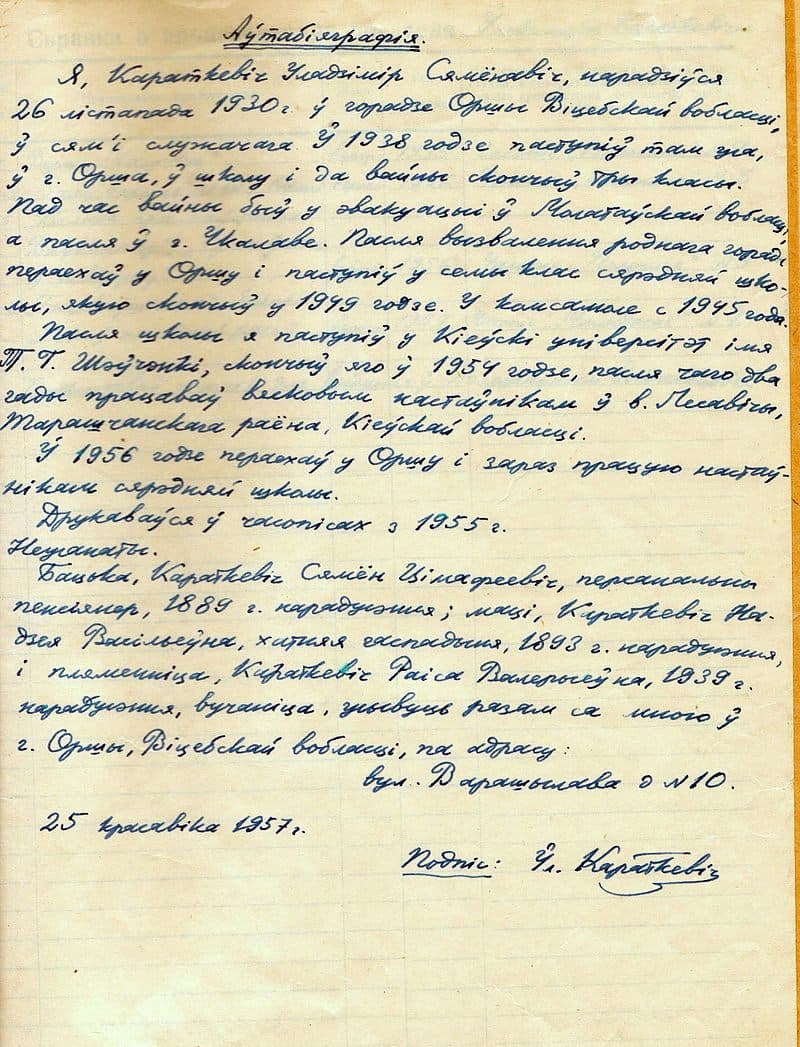 Аўтабіяграфія.
Я, Караткевіч Уладзімір Сямёнавіч, нарадзіўся
26 лістапада 1930 г. ў горадзе Оршы Віцебскай вобласці,
ў сям'і служачага. Ў 1938 годзе паступіў там жа,
ў г. Орша, ў школу і да вайны скончыў тры класы.
Пад час вайны быў у эвакуацыі ў Молатаўскай вобласці,
а пасля ў г. Чкалаве. Пасля вызвалення роднага горада
пераехаў у Оршу і паступіў у семы клас сярэдняй шко-
лы, якую скончыў у 1949 годзе. У камсамоле с 1945 года.
Пасля школы я паступіў у Кіеўскі універсітэт імя
Т. Г. Шэўчэнкі, скончыў яго ў 1954 годзе, пасля чаго два
гады працаваў вясковым настаўнікам ў в. Лесавічы,
Таращчанскага раёна, Кіеўскай вобласці.
Ў 1956 годзе пераехаў у Оршу і зараз працую настаў-
нікам сярэдняй школы.
Друкаваўся ў часопісах з 1955 г.
Нежанаты.
Бацька, Караткевіч Сямён Цімафеевіч, персанальны
пенсіянер, 1889 г. нараджэння; маці, Караткевіч На-
дзея Васільеўна, хатняя гаспадыня, 1893 г. нараджэння,
і пляменніца, Караткевіч Раіса Валерьеўна, 1939 г.
нараджэння, вучаніца, жывуць разам са мною ў
г. Оршы, Віцебскай вобласці, па адрасу:
вул. Варашылава д № 10.
25 красавіка 1957 г.
Подпіс: Ўл. Караткевіч